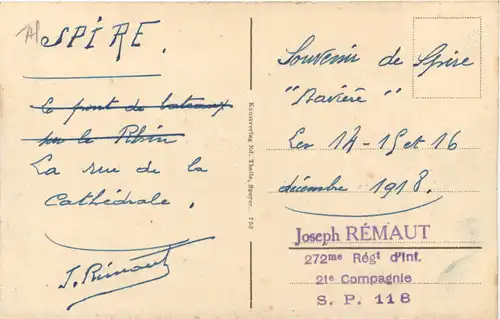 SPIRE.
Le pont de bateaux
sur le Rhin
La rue de la
Cathédrale.
J. Rémaut
Kunstverlag Ed. Theile, Speyer. 753
Souvenir de Spire
"Bavière"
Les 14-15 et 16
décembre 1918.
Joseph RÉMAUT
272me Régt d'Inf.
21e Compagnie
S. P. 118